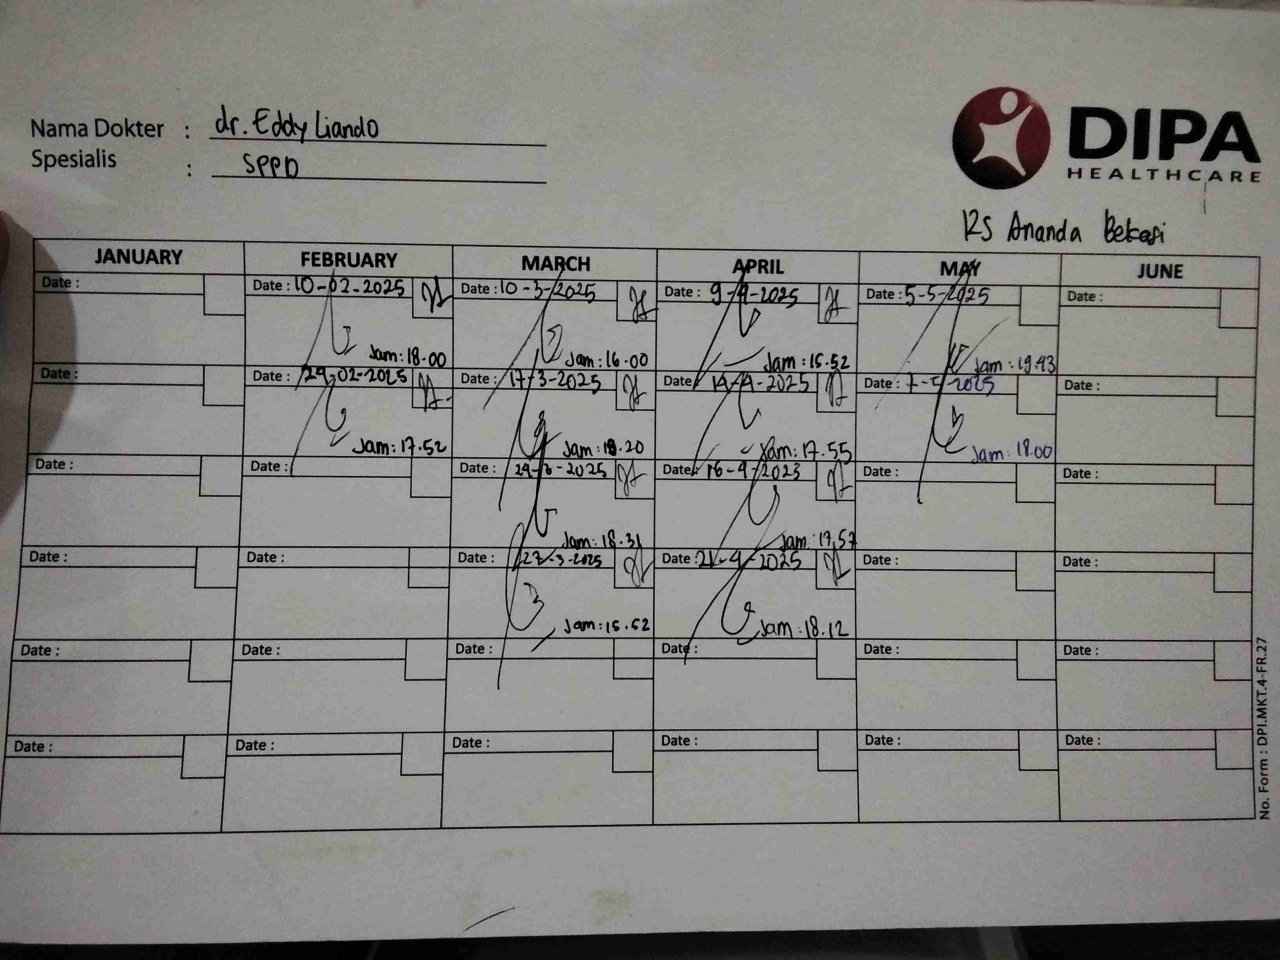 Nama Dokter : dr. Eddy Liando
Spesialis : SPPD
DIPA
HEALTHCARE
RS Ananda Bekasi
JANUARY FEBRUARY MARCH APRIL MAY JUNE
Date : Date : 10-02-2025 Date : 10-3-2025 Date : 9-4-2025 Date : 5-5-2025 Date :
Jam: 18.00 Jam: 16.00 Jam: 15.52 Jam: 19.43
Date : Date : 24-02-2025 Date : 17-3-2025 Date : 14-4-2025 Date : 7-5-2025 Date :
Jam: 17.52 Jam: 18.20 Jam: 17.55 Jam: 18.00
Date : Date : Date : 24-3-2025 Date : 16-4-2023 Date : Date :
Jam: 18.31 Jam: 17.57
Date : Date : Date : 27-3-2025 Date : 21-4-2025 Date : Date :
Jam: 15.52 Jam: 18.12
Date : Date : Date : Date : Date : Date :
Date : Date : Date : Date : Date : Date :
No. Form : DPI.MKT.4-FR.27